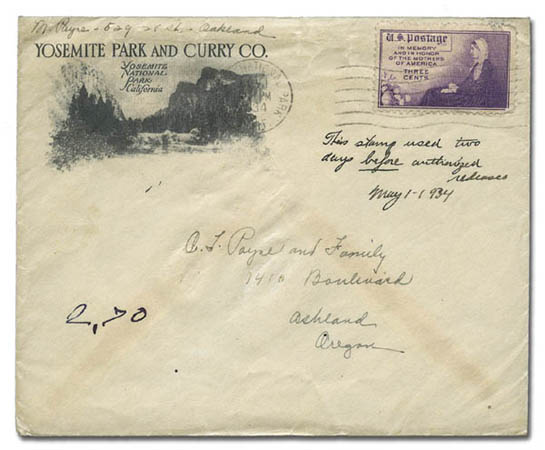 M. Payne - 529 28 St. - Oakland
YOSEMITE PARK AND CURRY CO.
YOSEMITE
NATIONAL
PARK
California
PARK
U.S. Postage
IN MEMORY
AND IN HONOR
OF THE MOTHERS
OF AMERICA
THREE
CENTS
This stamp used two
days before authorized
releases
May 1-1934
C. F. Payne and Family
Boulevard
Ashland
Oregon
2,70